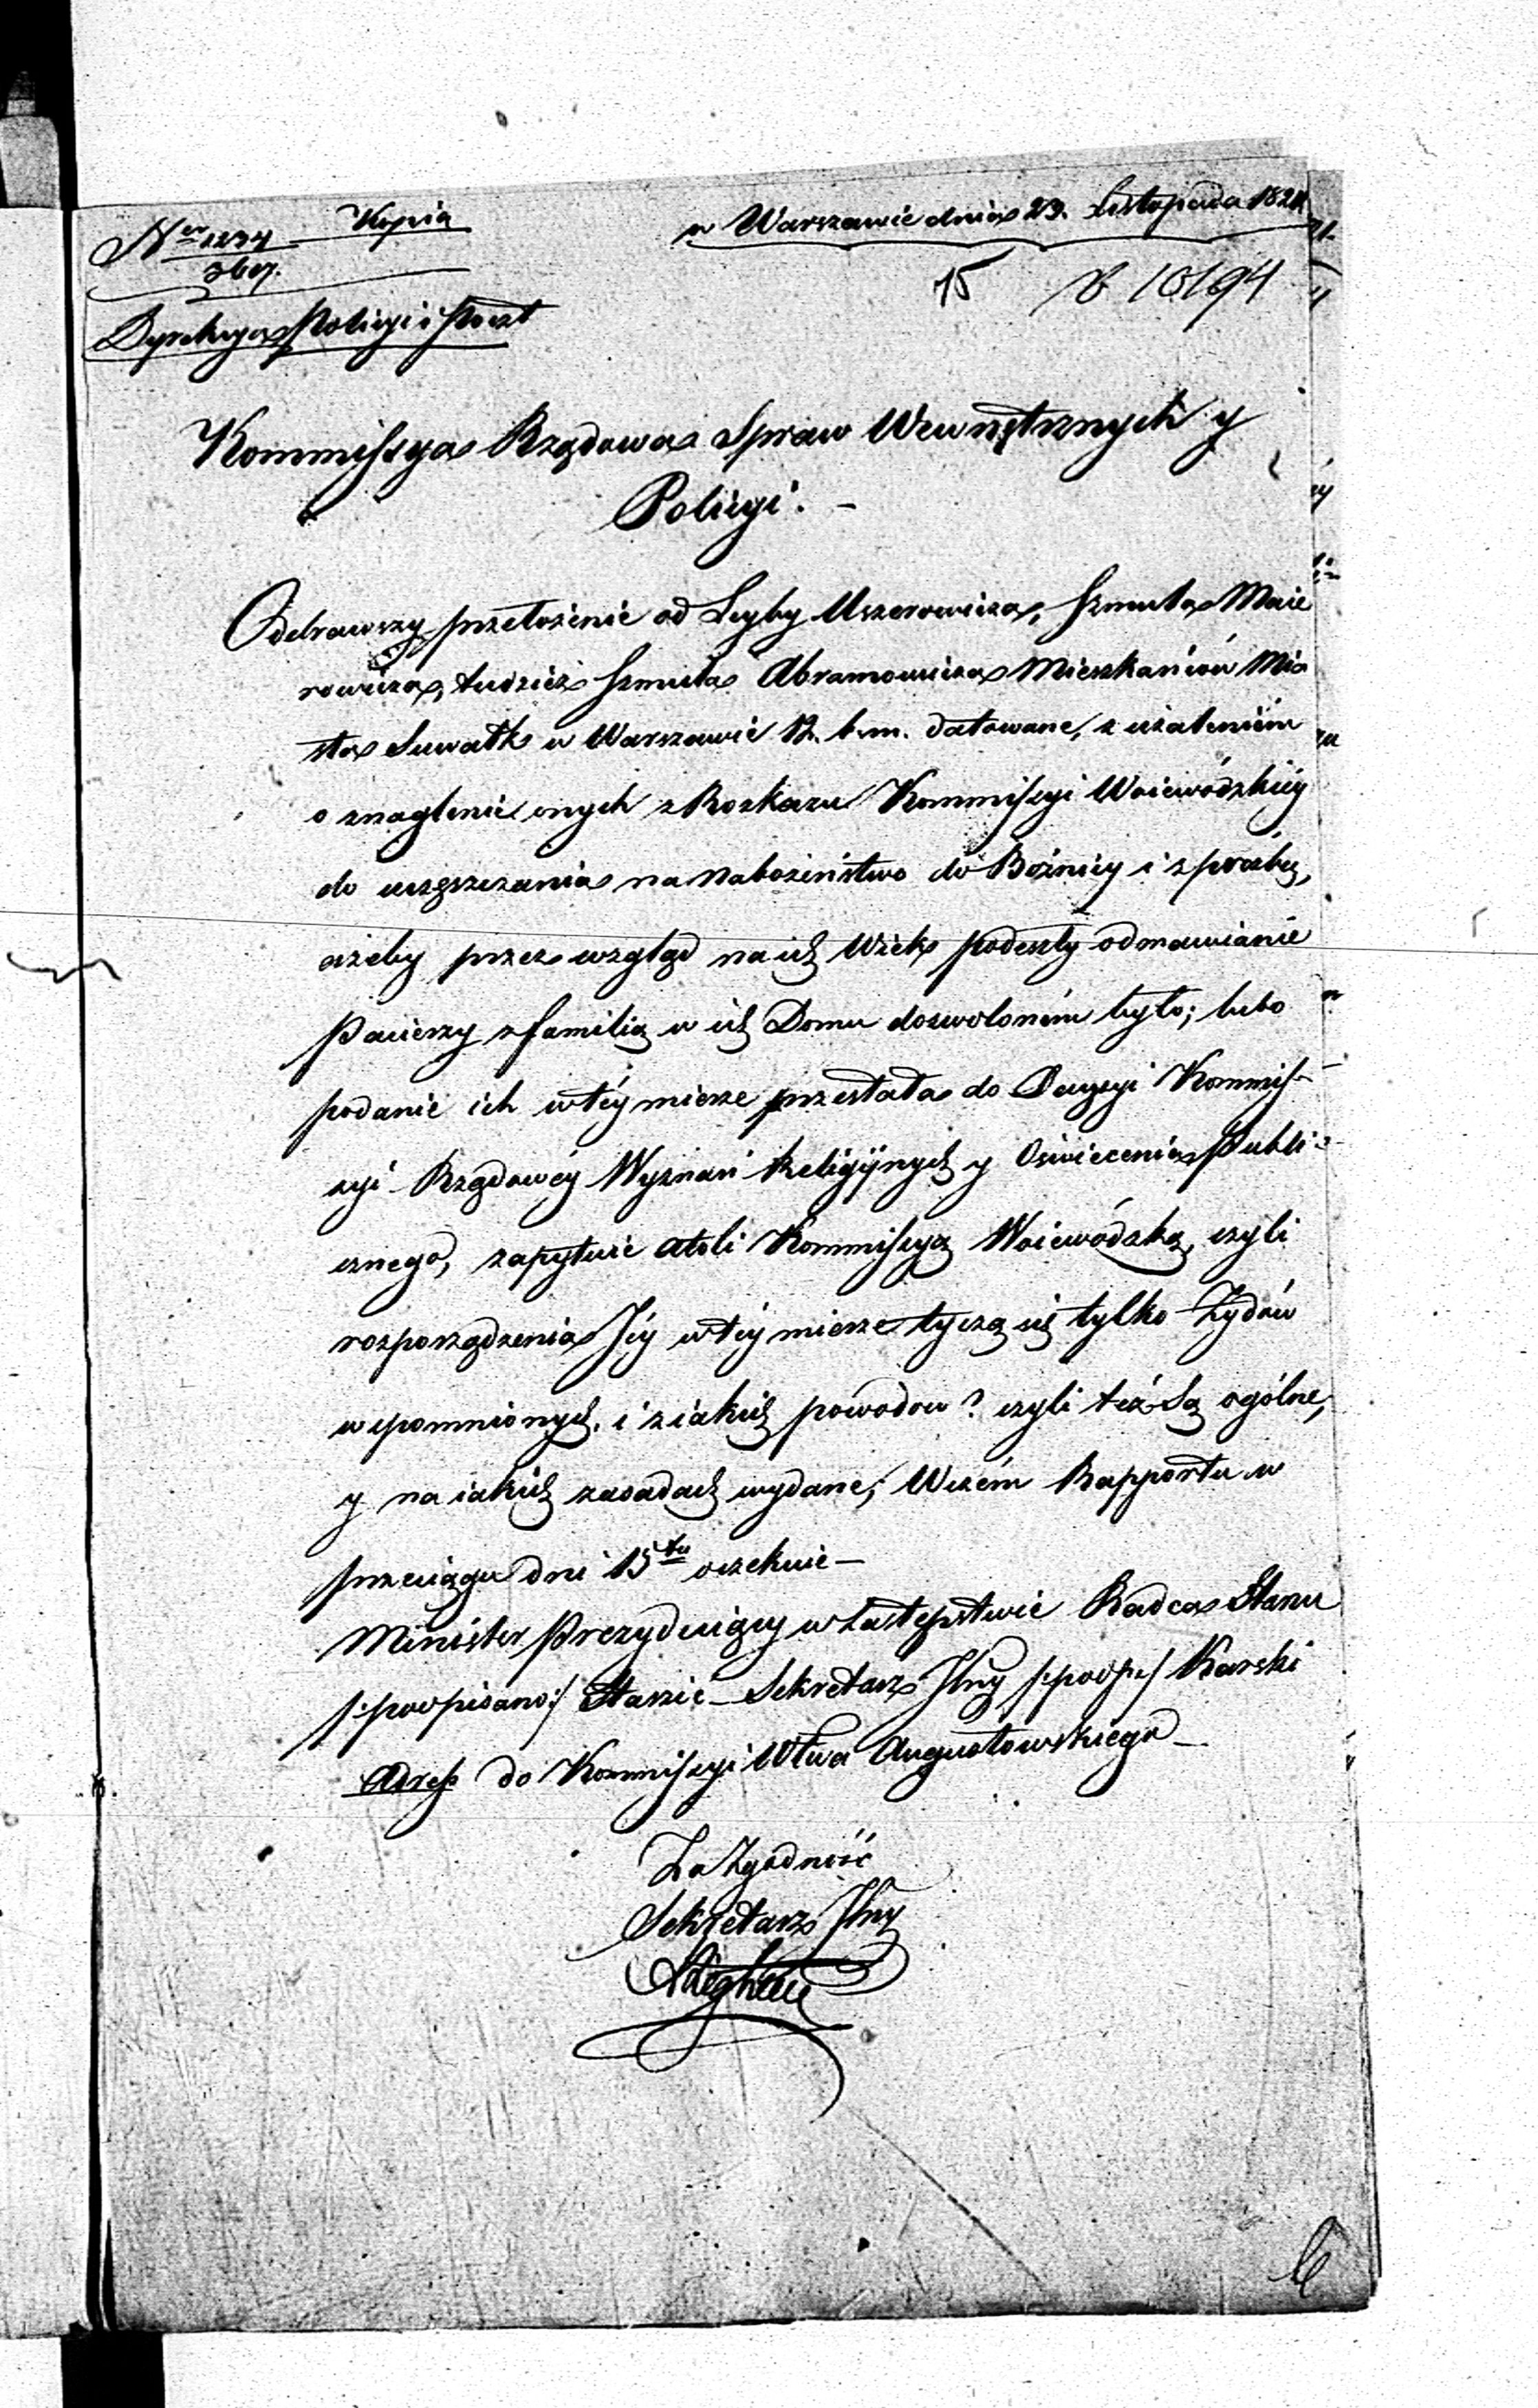 Nro 1234 Kopia
3607.
w Warszawie dnia 23. Listopada 1824
15 10194
Dyrekcya Policyi i Poczt
Kommissya Rządowa Spraw Wewnętrznych y
Policyi. –
Odebrawszy przełożenie od Leyby Uszerowicza, Szmula Maie
rowicza, tudzież Szmula Abramowicza Mieszkańców Mia
sta Suwałk w Warszawie 12. b.m. datowane, z użaleniem
o znaglenie onych z Rozkazu Kommissyi Woiewódzkiéy
do uczęszczania na nabożeństwo do Bożnicy i z prośbą,
ażeby przez wzgląd na ich Wiek podeszły odmawianie
Pacierzy z familią w ich Domu dozwoloném było; lubo
podanie ich w téy mierze przesłała do Decyzyi Kommis-
syi Rządowéy Wyznań Religiynych y Oświecenia Publi-
cznego, zapytuie atoli Kommissyą Woiewódzką, czyli
rozporządzenia Jéy w téy mierze tyczą się tylko Żydów
wspomnionych, i z iakich powodow? czyli też są ogólne,
y na iakich zasadach wydane; Wczém Rapportu w
przeciągu dni 15tu oczekuie –
Minister Prezyduiący w Zastępstwie Radca Stanu
/:podpisano:/ Staszic – Sekretarz Jlny /:podp:/ Karski
Adress do Kommissyi Wtwa Augustowskiego –
Za Zgodność
Sekretarz Jlny
6